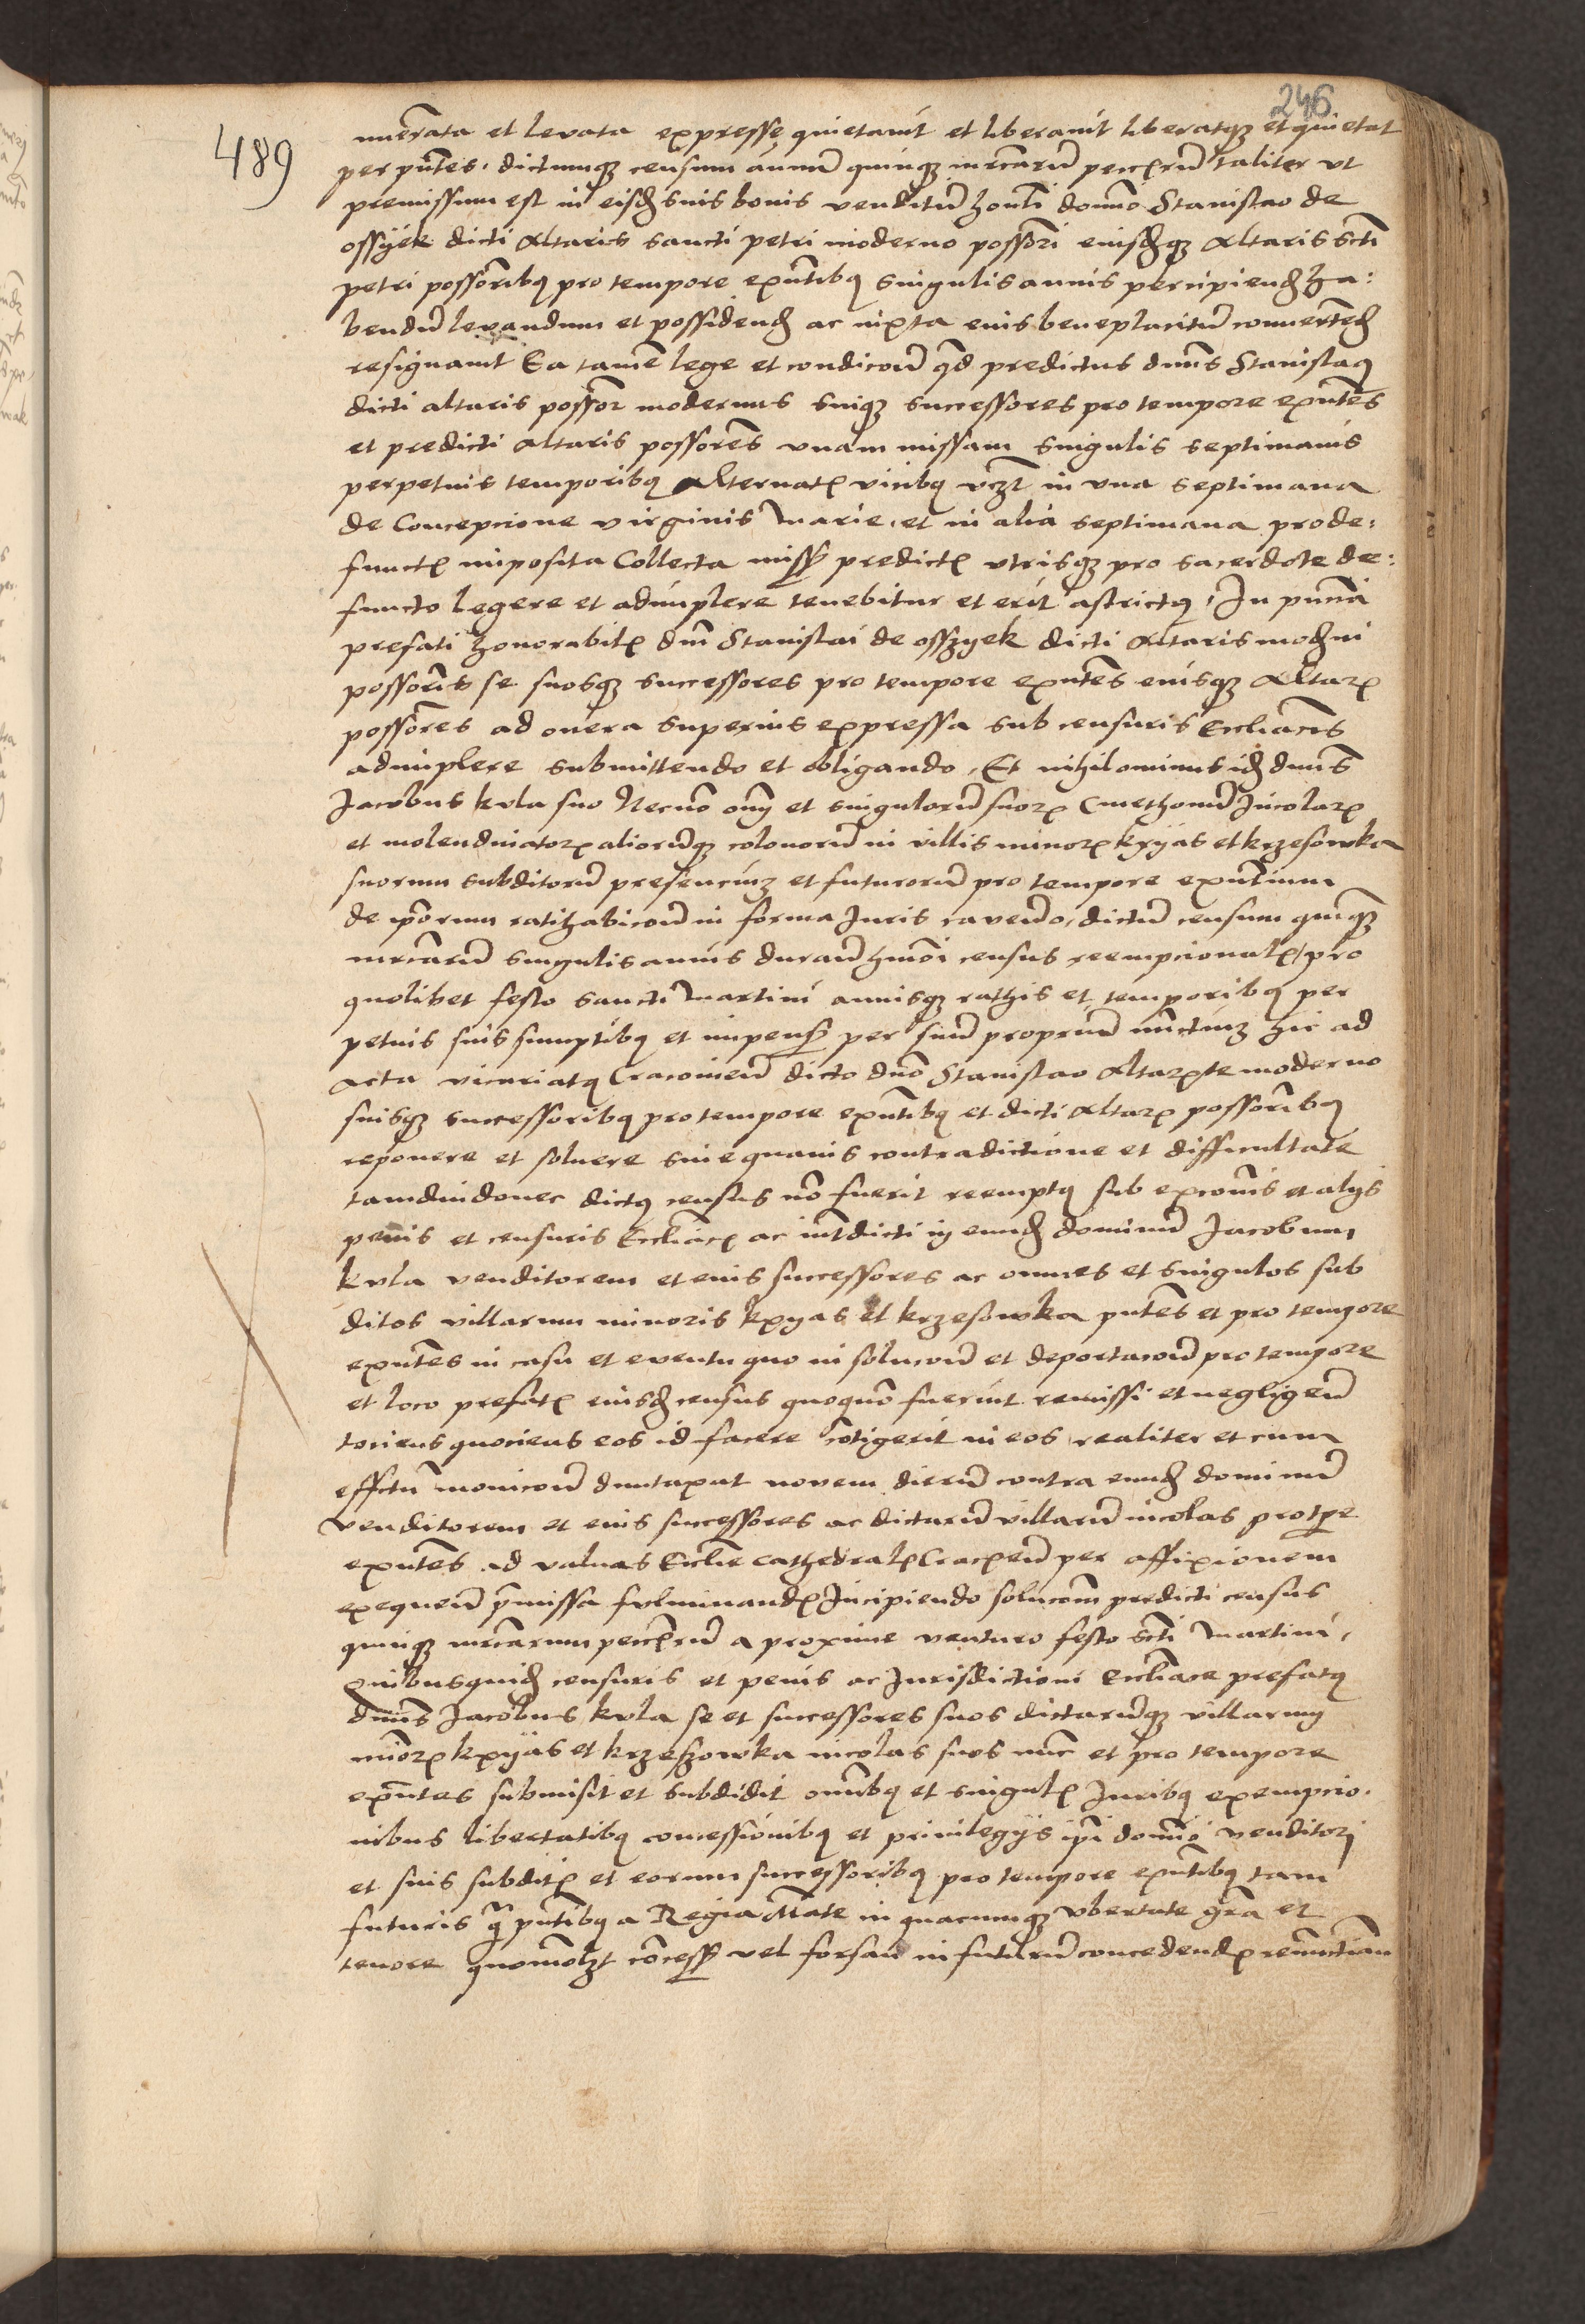 246.
489
nuerata et levata expresse quietavit et liberavit liberatqz et quietat
per pntes. dictumqz censum annuū quinqz mrcarū peccꝝriū taliter vt
premissum est in eisdē suis bonis venditū honli domīo Stanislao de
ossyek dicti Altaris sancti petri moderno possori eiusdēqz Altaris scti
petri possoribq pro tempore exntibq singulis annis percipiendū ha:
bendū levandum et possidendū ac iuxta eius beneplacitū convertendū
resignavit Ea tamē lege et condicōe qd predictus dnūs Stanislaq
dicti altaris possor modernus suiqz successores pro tempore exntes
et predicti altaris possores vnam missam singulis septimanis
perpetuis temporibq alternatꝭ vicibq vczt in vna septimana
de Concepcione virginis Marie. et in alia septimana pro de:
functꝭ imposita Collecta missꝭ predictꝭ vtrisqz pro sacerdote de:
functo legere et adimplere tenebitur et erit astrictq, In pntia
prefati honorabilꝭ dni Stanislai de osszyek dicti Altaris modni
possoris se suosqz successores pro tempore exntes eiusqz Altarꝭ
possores ad onera superius expressa sub censuris Ecclīacis
adimplere submittendo et obligando, Et nihilominus idē dnūs
Jacobus kula suo Necnō oīm et singulorū suorꝝ Cmethonū Incolarꝝ
et molendinatorꝝ aliorūqz colonorū in villis minorꝭ kxyas et krzesowka
suorum subditorū presenciūz et futurorū pro tempore exntium
de ipsorum ratihabicōe in forma Juris cavendo, dictū censum quinqz
mrcarū singulis annis durañ hmōi census reempcionalꝭ pro
quolibet festo sancti Martini annisqz rathis et temporibq per
petuis suis sumptibq et impensꝭ per suū propriū nūctiūz hic ad
acta vicariatq Cracovień dicto dnō Stanislao Altarꝭte moderno
suisqz successoribq pro tempore exntibq et dicti Altarꝭ possoribq
reponere et soluere sine quavis contradictione et difficultate
tamdiu donec dictq census nō fuerit reemptq sub excoīnis et alijs
penis et censuris Ecclīacꝭ ac intdicti in eundē dominū Jacobum
kula venditorem et eius successores ac omnes et singulos sub
ditos villarum minoris kxyas et krzesowka pntes et pro tempore
exntes in casu et eventu quo in solucōe et deportacōe pro tempore
et loco prefatꝭ eiusdē census quoquō fuerint remissi et negligeñ
tociens quociens eos id facere cōtigerit in eos realiter et cum
effctu monicōe duntaxat novem dierū contra eundē dominū
venditorem et eius successores ac dictarū villarū incolas pro tpe
exntes ad valvas Ecclīe cathedralꝭ Cracꝭeñ per affixionem
exequeñ pmissa fulminandꝭ Incipiendo solucōm predicti census
quinqz mrcarum peccꝝriū a proxime venturo festo scti Martini,
Quibusquidē censuris et penis ac Jurisdictioni Ecclīace prefatq
dnūs Jacobus kula se et successores suos dictarūqz villarum
miorꝭ kxyas et krzeszowka incolas suos nūc et pro tempore
exntes submisit et subdidit omībq et singulꝭ Juribq exempcio.
nibus libertatibq concessionibq et privilegijs ipi domīo venditori
et suis subditꝭ et eorum successoribq pro tempore exntibq tam
futuris q pntibq a Regia Mate in quacumqz vbertate gra et
tenore quomōlzt cōcessꝭ vel forsan in futurū concedendꝭ renuctian